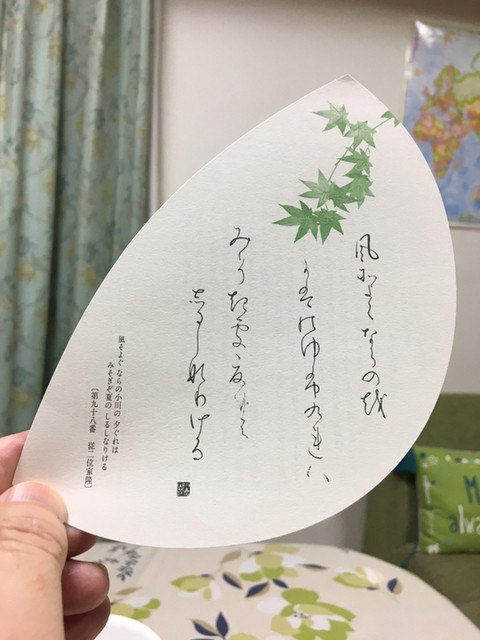 風そよくならのを
かはのゆふくれハ
みそきそ
しるしなりける
風そよぐ ならの小川の 夕ぐれは
みそぎぞ夏の しるしなりける
〔第九十八番 従二位家隆〕